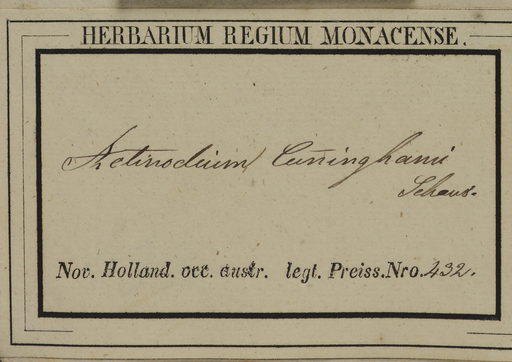 HERBARIUM REGIUM MONACENSE.
Actinodium Cuninghami
Schau.
Nov. Holland. occ. austr. legt. Preiss. Nro. 432.